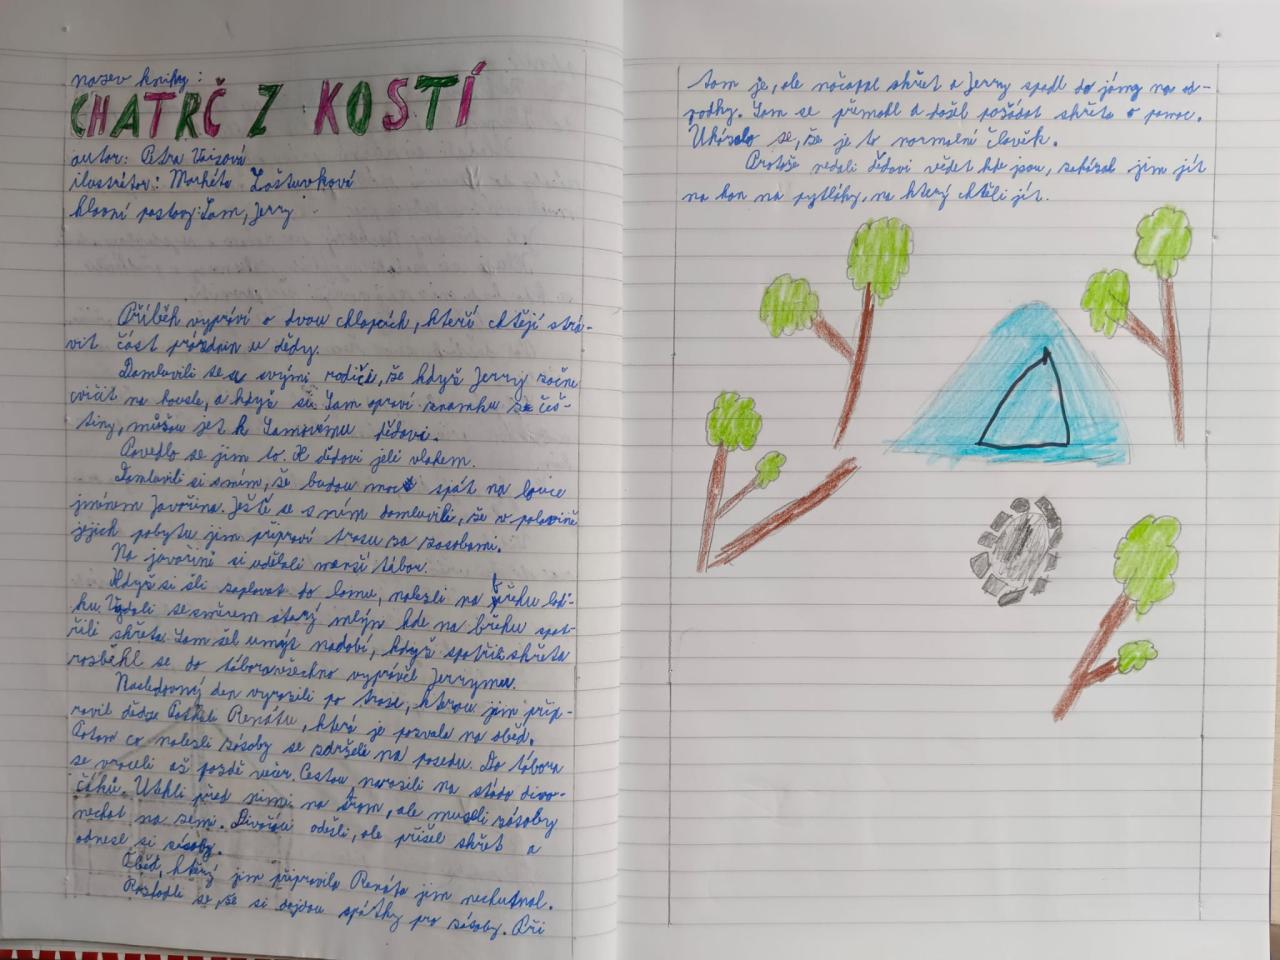 název knihy:
CHATRČ Z KOSTÍ
autor: Petra Vaizová
ilustrátor: Markéta Laštuvková
hlavní postavy: Sam, Jerry
Příběh vypráví o dvou chlapcích, kteří chtějí strá-
vit část prázdnin u dědy.
Domluvili se s svými rodiči, že když Jerry začne
cvičit na housle, a když si Sam opraví známku z češ-
tiny, můžou jet k Samovému dědovi.
Povedlo se jim to. K dědovi jeli vlakem.
Domluvili si s ním, že budou moct spát na louce
jménem Javořina. Ještě se s ním domluvili, že v polovině
jejich pobytu jim připraví trasu za zásobami.
Na javořině si udělali menší tábor.
Když si šli zaplavat do lomu, nalezli na břehu loď-
ku. Vydali se směrem starý mlýn kde na břehu spat-
řili skřeta. Sam šel umýt nádobí, když spatřil skřeta
rozběhl se do tábora všechno vyprávěl Jerrymu.
Následovný den vyrazili po trase, kterou jim přip-
ravil děda. Potkali Renátu, která je pozvala na oběd.
Potom co nalezli zásoby se zdrželi na posedu. Do tábora
se vraceli až pozdě večer. Cestou narazili na stádo divo-
čáků. Utekli před nimi na strom, ale museli zásoby
nechat na zemi. Divočáci odešli, ale přišel skřet a
odnesl si zásoby.
Oběd, který jim připravila Renáta jim nechutnal.
Rozhodli se, že si dojdou zpátky pro zásoby. Při
tom je, ale načapal skřet a Jerry spadl do jámy na od-
padky. Sam se přemohl a došel požádat skřeta o pomoc.
Ukázalo se, že je to normální člověk.
Protože nedali dědovi vědět kde jsou, zakázal jim jít
na hon na pytláky, na který chtěli jít.